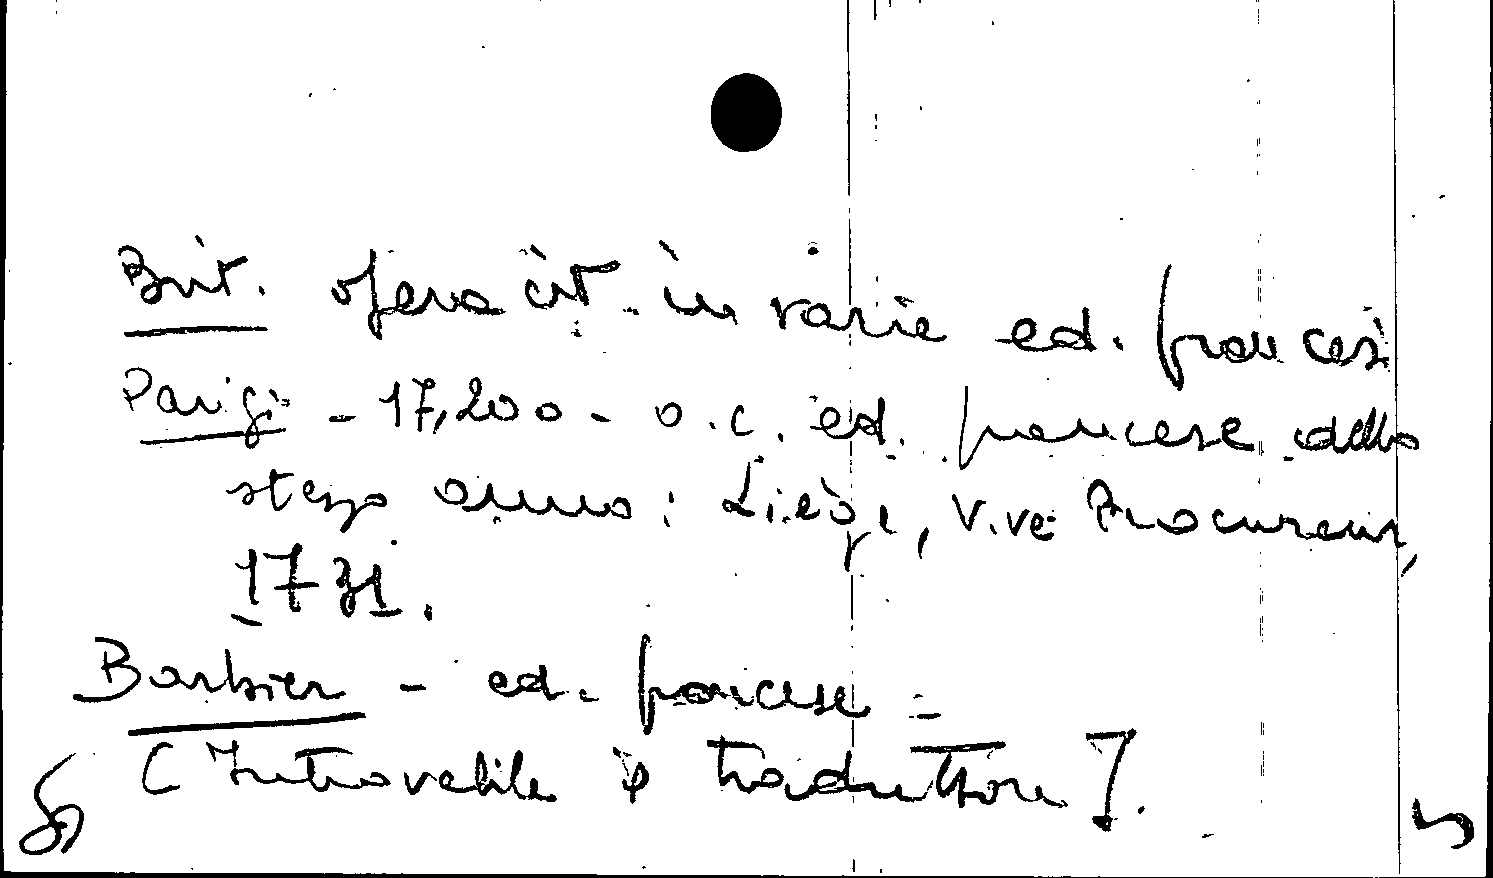 Brit. opera cit. in varie ed. francesi
Parigi - 17,200 - o.c. ed. francese dello
stesso anno: Liège, V.ve Procureur,
1731.
Barbier - ed. francese -
[Introvabile il traduttore].